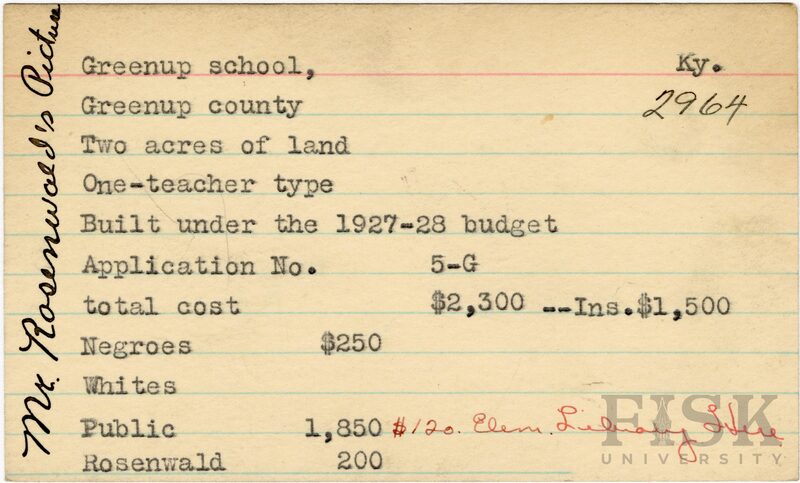 Mr. Rosenwald's Picture
Greenup school, Ky.
Greenup county 2964
Two acres of land
One-teacher type
Built under the 1927-28 budget
Application No. 5-G
total cost $2,300 --Ins.$1,500
Negroes $250
Whites
Public 1,850 $120. Elem. Library Here
Rosenwald 200
FISK
UNIVERSITY